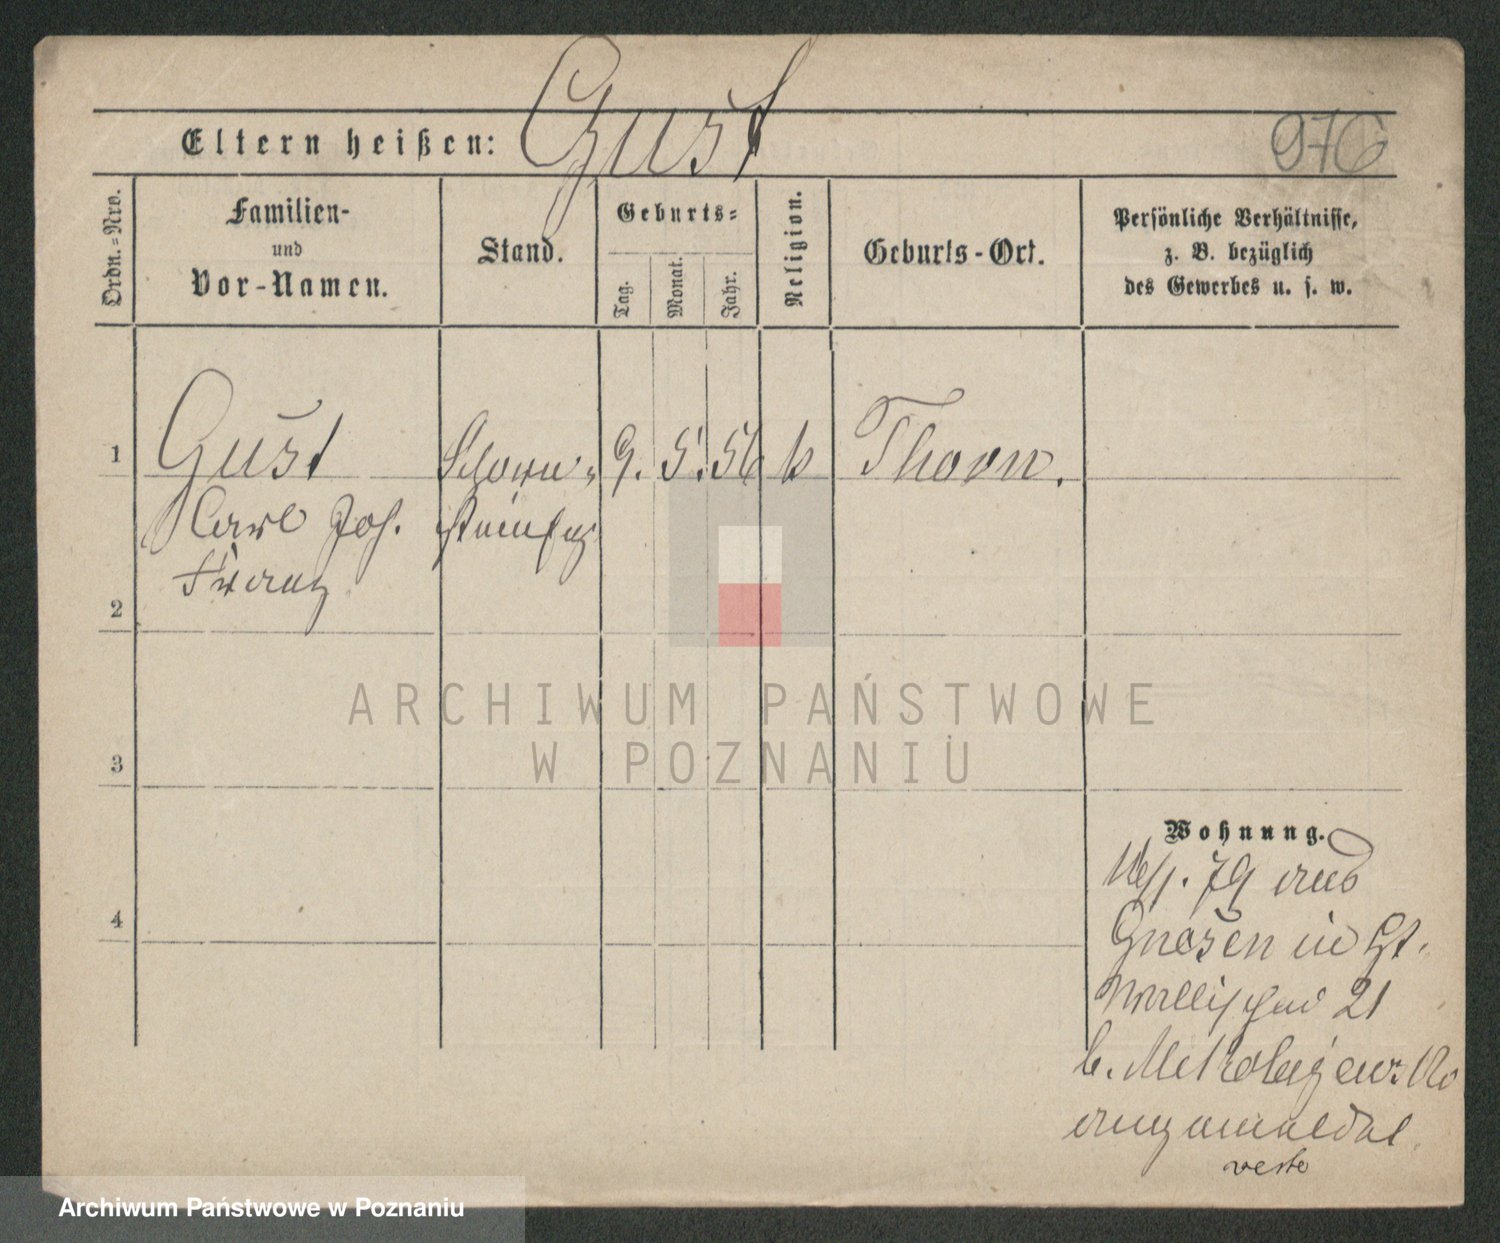 Gust
Eltern heißen:
976
Ordn.-Nro.
Familien-
und
Vor-Namen.
Stand.
Geburts-
Tag.
Monat.
Jahr.
Religion.
Geburts-Ort.
Persönliche Verhältnisse,
z. B. bezüglich
des Gewerbes u. s. w.
1
Gust
Schorn-
9. 5. 56
k
Thorn.
Karl Joh.
steinfeg
Franz
2
ARCHIWUM PAŃSTWOWE
W POZNANIU
3
Wohnung.
79 aus
4
Gnesen in St.
Wallischei 21
b.
angemeldet
Archiwum Państwowe w Poznaniu